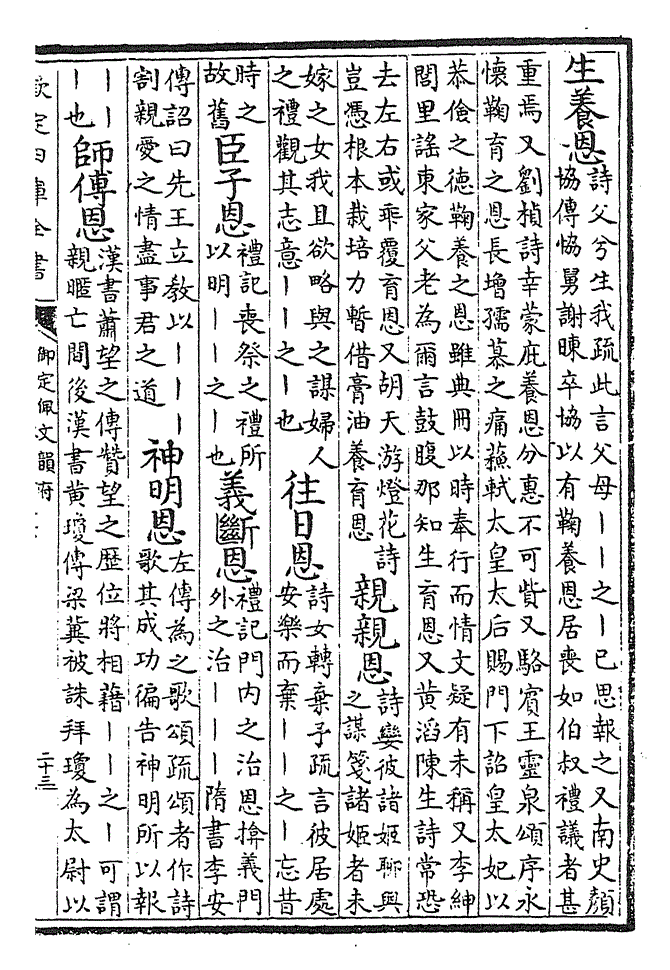 生養恩詩父兮生我疏此言父母丨丨之丨已思報之又南史顏
協傳恊舅謝暕卒協以有鞠養恩居喪如伯叔禮議者甚
重焉又劉楨詩幸蒙庇養恩分惠不可貲又駱賓王靈泉頌序永
懷鞠育之恩長增孺慕之痛蘓軾太皇太后賜門下詔皇太妃以
恭儉之德鞠養之恩雖典冊以時奉行而情文疑有未稱又李紳
閭里謠東家父老為爾言鼓腹那知生育恩又黄滔陳生詩常恐
去左右或乖覆育恩又胡天游燈花詩
豈憑根本栽培力暫借膏油養育恩
親親恩詩孌彼諸姬聊與
之謀箋諸姬者未
嫁之女我且欲略與之謀婦人
之禮觀其志意丨丨之丨也
往日恩詩女轉棄予疏言彼居處
安樂而棄丨丨之丨忘昔
時之
故舊
臣子恩禮記喪祭之禮所
以明丨丨之丨也
義斷恩禮記門内之治恩揜義門
外之治丨丨丨隋書李安
傳詔曰先王立教以丨丨丨
割親愛之情盡事君之道
神明恩左傳為之歌頌疏頌者作詩
歌其成功徧告神明所以報
丨丨丨
丨也
師傅恩漢書蕭望之傳贊望之歴位將相藉丨丨之丨可謂
親暱亡間後漢書黄瓊傳梁冀被誅拜瓊為太尉以
欽定四庫全書
御定佩文韻府
二十三